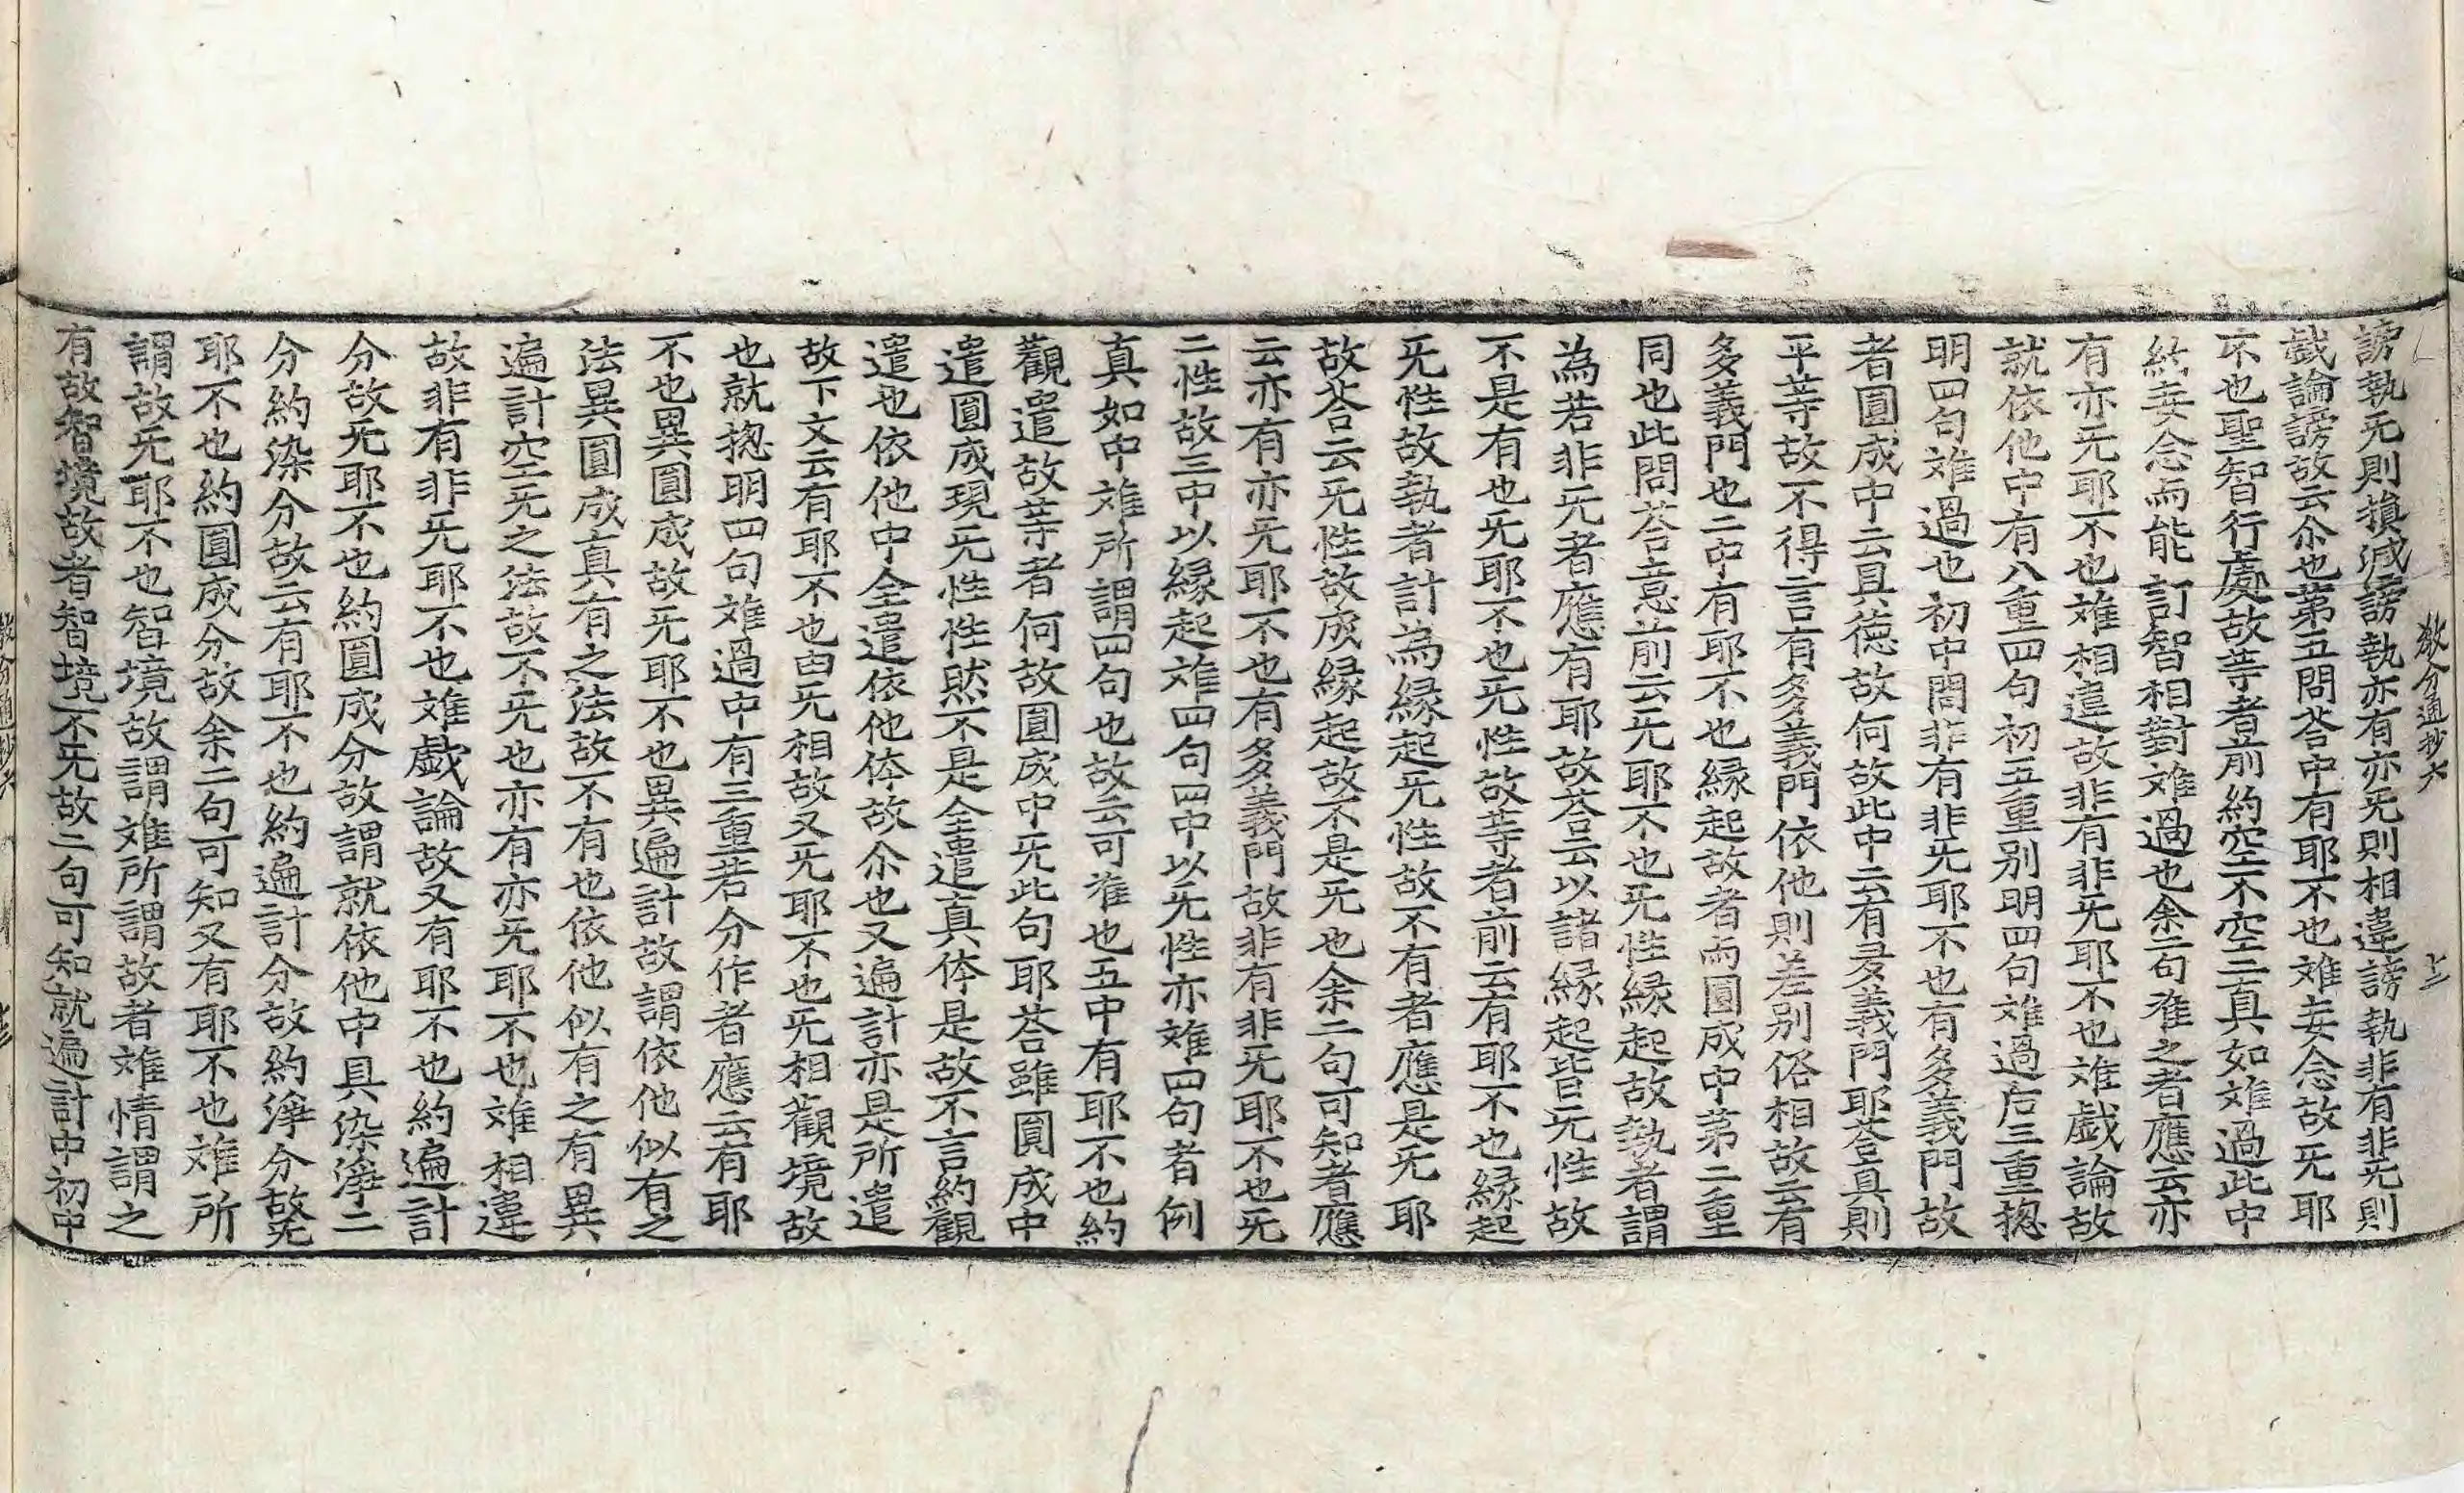 敎分通抄六　十三
謗執无則損減謗執亦有亦无則相違謗執非有非无則
戱論謗故云尒也第五問荅中有耶不也難妄念故无耶
不也聖智行處故䓁者前約空不空二真如難過此中
約妄念而能訂智相對難過也余二句准之者應云亦
有亦无耶不也難相違故非有非无耶不也難戱論故
就依他中有八重四句初五重別明四句難過后三重捴
明四句難過也初中問非有非无耶不也有多義門故
者圓成中云具德故何故此中云有多義門耶荅真則
平䓁故不得言有多義門依他則差別俗相故云有
多義門也二中有耶不也縁起故者而圓成中第二重
同也此問荅意前云无耶不也无性縁起故執者謂
為若非无者應有耶故荅云以諸縁起皆无性故
不是有也无耶不也无性故䓁者前云有耶不也縁起
无性故執者計為縁起无性故不有者應是无耶
故荅云无性故成縁起故不是无也余二句可知者應
云亦有亦无耶不也有多義門故非有非无耶不也无
二性故三中以縁起難四句四中以无性亦難四句者例
真如中難所謂四句也故云可准也五中有耶不也約
觀遣故䓁者何故圓成中无此句耶荅雖圓成中
遣圓成現无性性然不是全遣真体是故不言約觀
遣也依他中全遣依他体故尒也又遍計亦是所遣
故下文云有耶不也由无相故又无耶不也无相觀境故
也就捴明四句難過中有三重若分作者應云有耶
不也異圓成故无耶不也異遍計故謂依他似有之
法異圓成真有之法故不有也依他似有之有異
遍計空无之法故不无也亦有亦无耶不也難相違
故非有非无耶不也難戱論故又有耶不也約遍計
分故无耶不也約圓成分故謂就依他中具染淨二
分約染分故云有耶不也約遍計分故約淨分故无
耶不也約圓成分故余二句可知又有耶不也難所
謂故无耶不也智境故謂難所謂故者難情謂之
有故智境故者智境不无故二句可知就遍計中初中